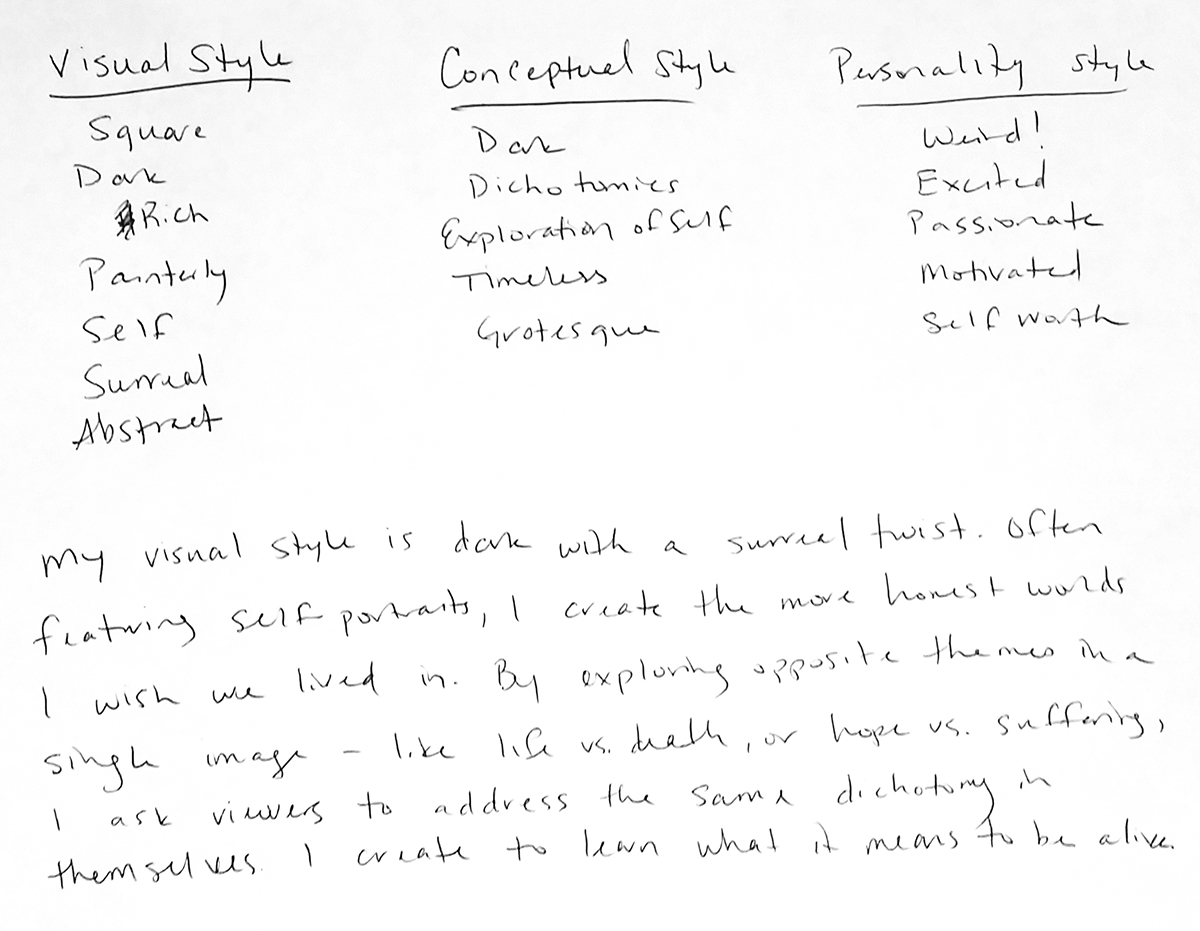 Visual Style
Square
Dark
Rich
Painterly
Self
Surreal
Abstract
Conceptual Style
Dark
Dichotomies
Exploration of Self
Timeless
Grotesque
Personality style
Weird!
Excited
Passionate
Motivated
Self worth
My visual style is dark with a surreal twist. Often
featuring self portraits, I create the more honest worlds
I wish we lived in. By exploring opposite themes in a
single image - like life vs. death, or hope vs. suffering,
I ask viewers to address the same dichotomy in
themselves. I create to learn what it means to be alive.